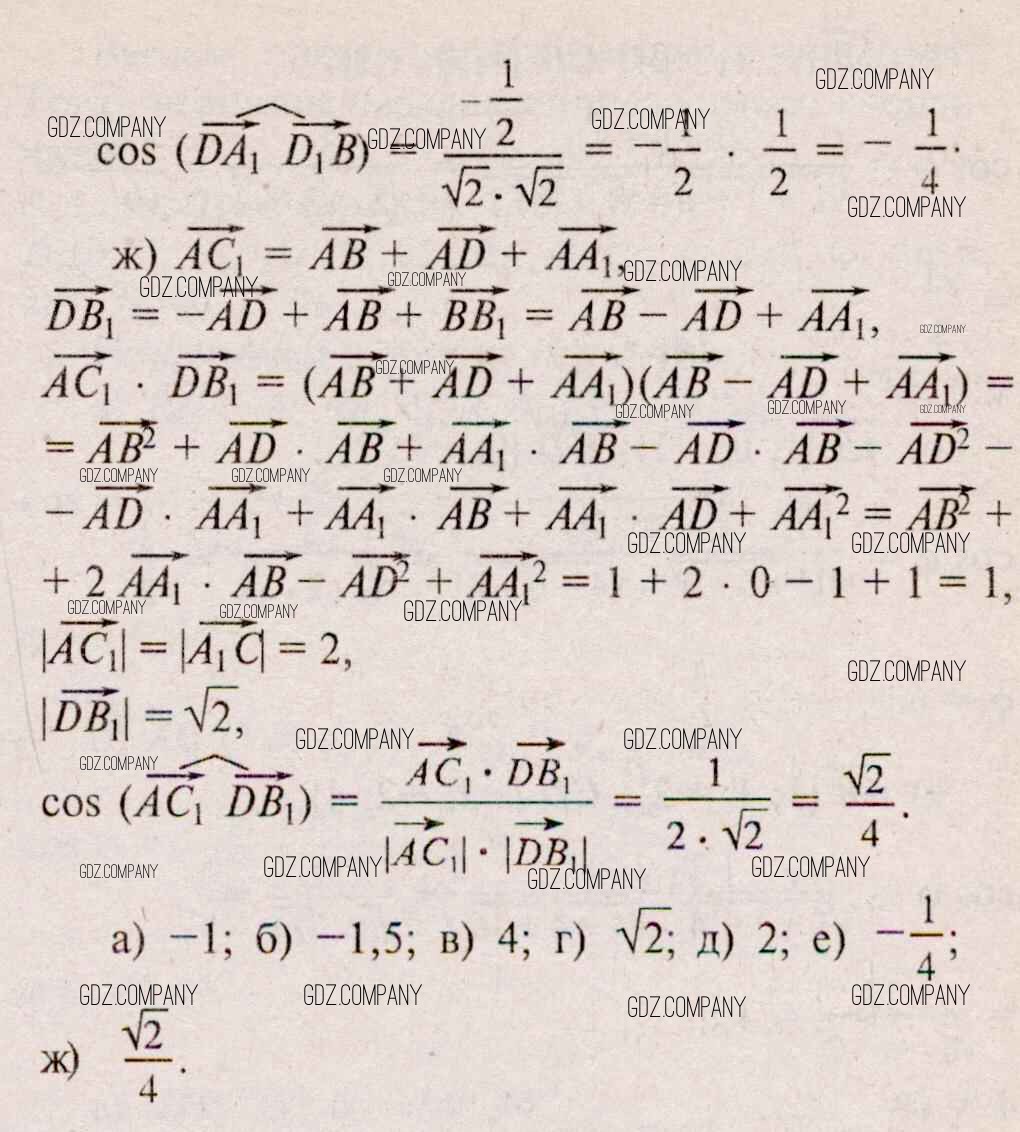 cos (DA₁ D₁B) = (-1/2)/(√2 · √2) = -1/2 · 1/2 = -1/4.
ж) AC₁ = AB + AD + AA₁,
DB₁ = -AD + AB + BB₁ = AB - AD + AA₁,
AC₁ · DB₁ = (AB + AD + AA₁)(AB - AD + AA₁) =
= AB² + AD · AB + AA₁ · AB - AD · AB - AD² -
- AD · AA₁ + AA₁ · AB + AA₁ · AD + AA₁² = AB² +
+ 2 AA₁ · AB - AD² + AA₁² = 1 + 2 · 0 - 1 + 1 = 1,
|AC₁| = |A₁C| = 2,
|DB₁| = √2,
cos (AC₁ DB₁) = (AC₁ · DB₁)/(|AC₁| · |DB₁|) = 1/(2 · √2) = √2/4.
а) -1; б) -1,5; в) 4; г) √2; д) 2; е) -1/4;
ж) √2/4.
GDZ.COMPANY